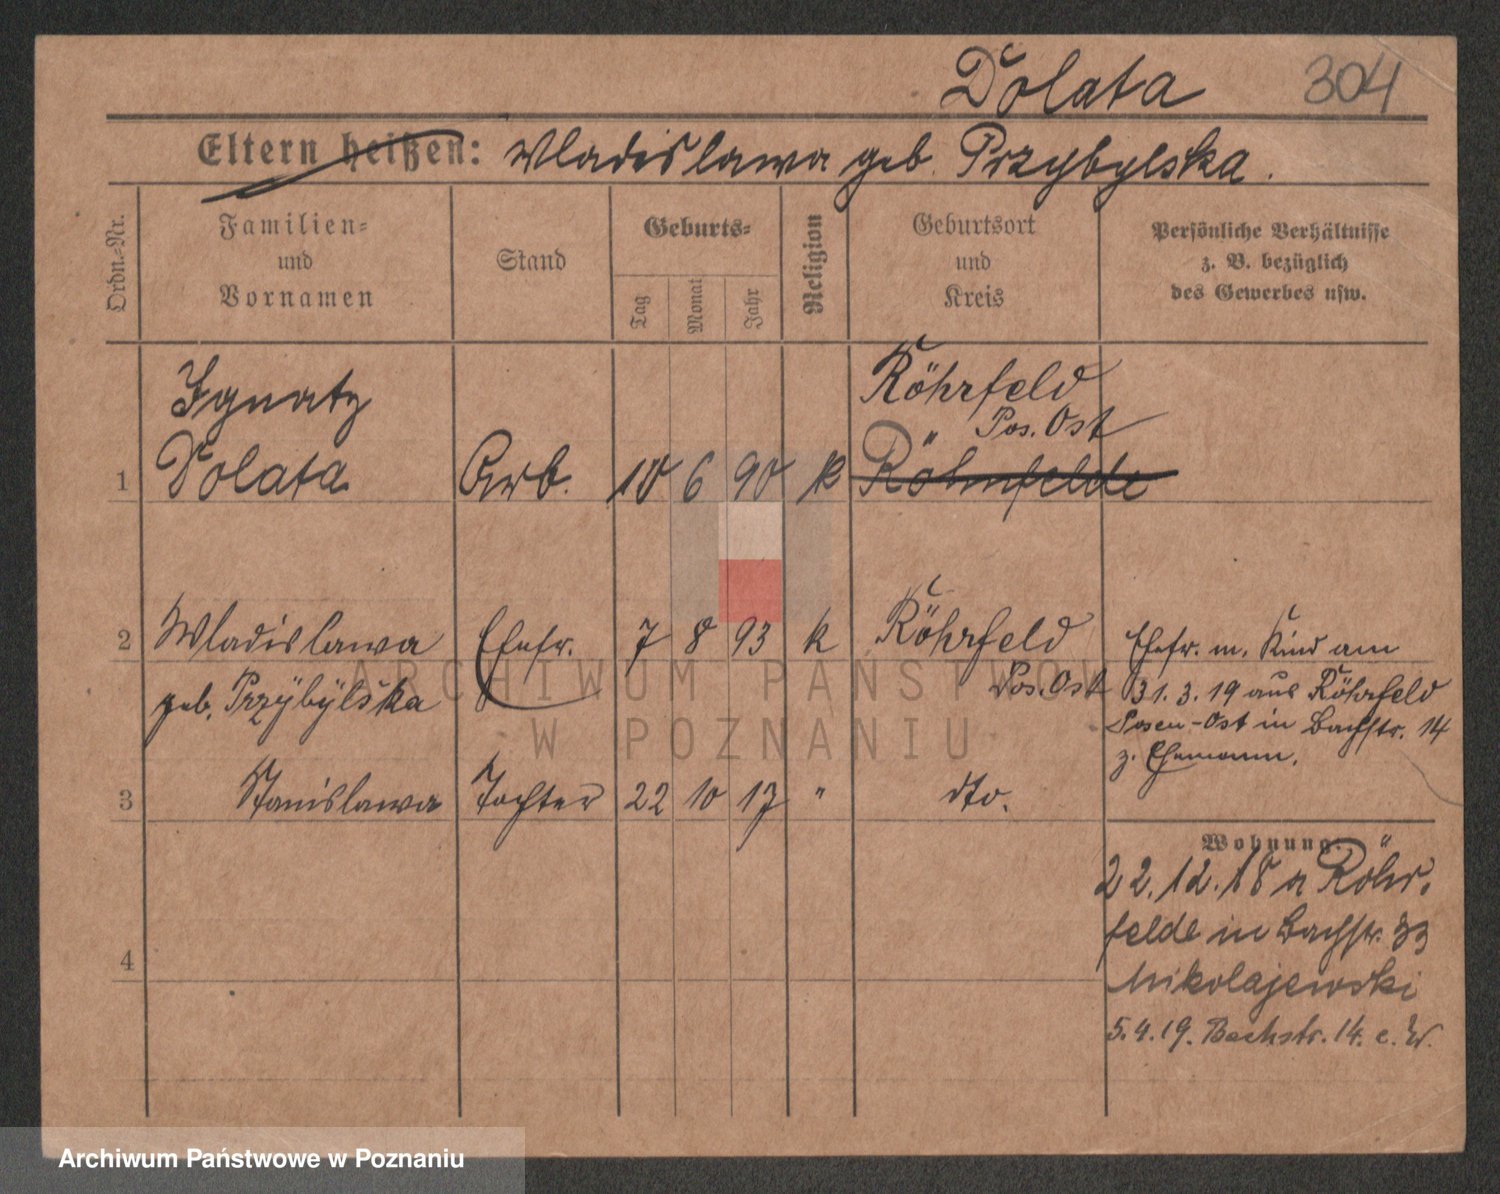 Dolata 304
Eltern heißen: Wladislawa geb. Przybylska.
Ordn.-Nr.
Familien-
und
Vornamen
Stand
Geburts-
Tag
Monat
Jahr
Religion
Geburtsort
und
Kreis
Persönliche Verhältnisse
z. B. bezüglich
des Gewerbes usw.
Ignatz
Röhrfeld
Pos. Ost
1 Dolata Arb. 10 6 90 k
2 Wladislawa Ehefr. 7 8 93 k Röhrfeld
geb. Przybylska Pos. Ost
Ehefr. m. Kind am
31.3.19 aus Röhrfeld
Posen-Ost in Bachstr. 14
z. Ehemann.
3 Stanislawa Tochter 22 10 17 " dto.
Wohnung.
22.12.18 a Röhr-
felde in Bachstr. 33
Mikolajewski
4
5.4.19. Bachstr. 14. e. W.
ARCHIWUM PAŃSTWOWE
W POZNANIU
Archiwum Państwowe w Poznaniu